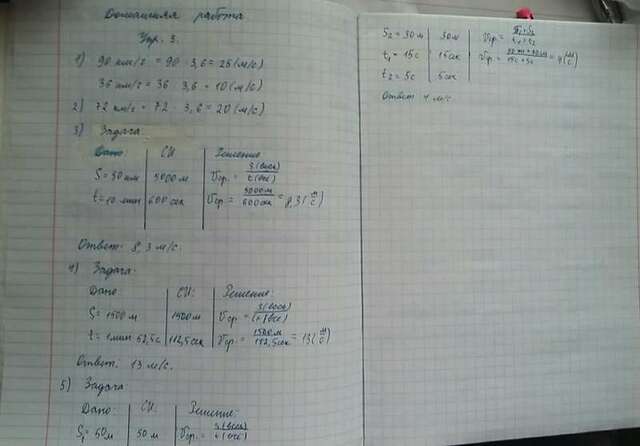 Домашняя работа
Упр. 3.
1) 90 км/г = 90 : 3,6 = 25 (м/с)
36 км/г = 36 : 3,6 = 10 (м/с)
2) 72 км/г = 72 : 3,6 = 20 (м/с)
3) Задача.
Дано: СИ Решение
S = 30 км 5000 м Vср. = S(весь)/t(все)
t = 10 мин 600 сек Vср. = 5000 м/600 сек = 8,3 (м/с)
Ответ: 8,3 м/с.
4) Задача.
Дано: СИ: Решение:
S = 1500 м 1500 м Vср. = S(весь)/t(все)
t = 1 мин 52,5 с 112,5 сек Vср. = 1500 м/112,5 сек = 13 (м/с)
Ответ: 13 м/с.
5) Задача
Дано: СИ: Решение:
S₁ = 50 м 50 м Vср. = S(весь)/t(все)
S₂ = 30 м 30 м Vср. = S₁+S₂/t₁+t₂
t₁ = 15 с 15 сек Vср. = 50 м + 30 м/15 с + 5 с = 4 (м/с)
t₂ = 5 с 5 сек
Ответ 4 м/с.